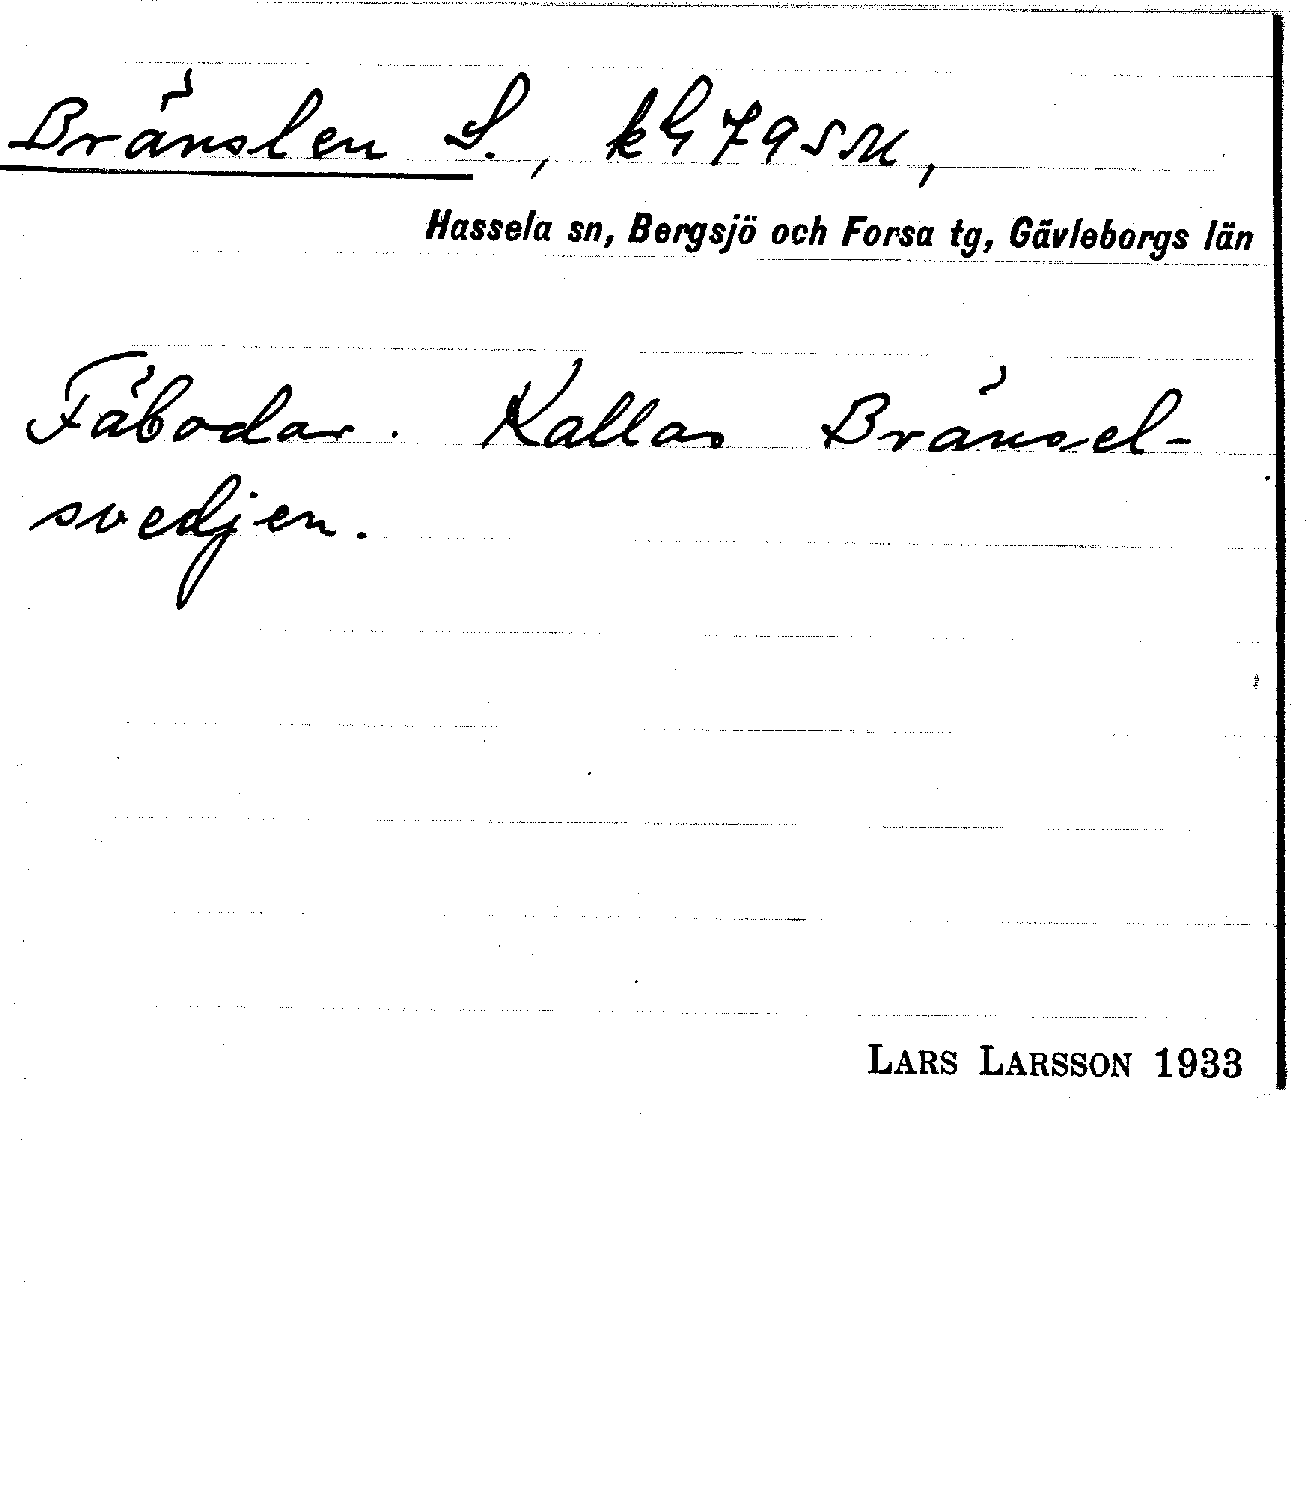 Bränslen S., kG 79 SM,
Hassela sn, Bergsjö och Forsa tg, Gävleborgs län
Fäbodar. Kallas Bränsel-
svedjen.
LARS LARSSON 1933